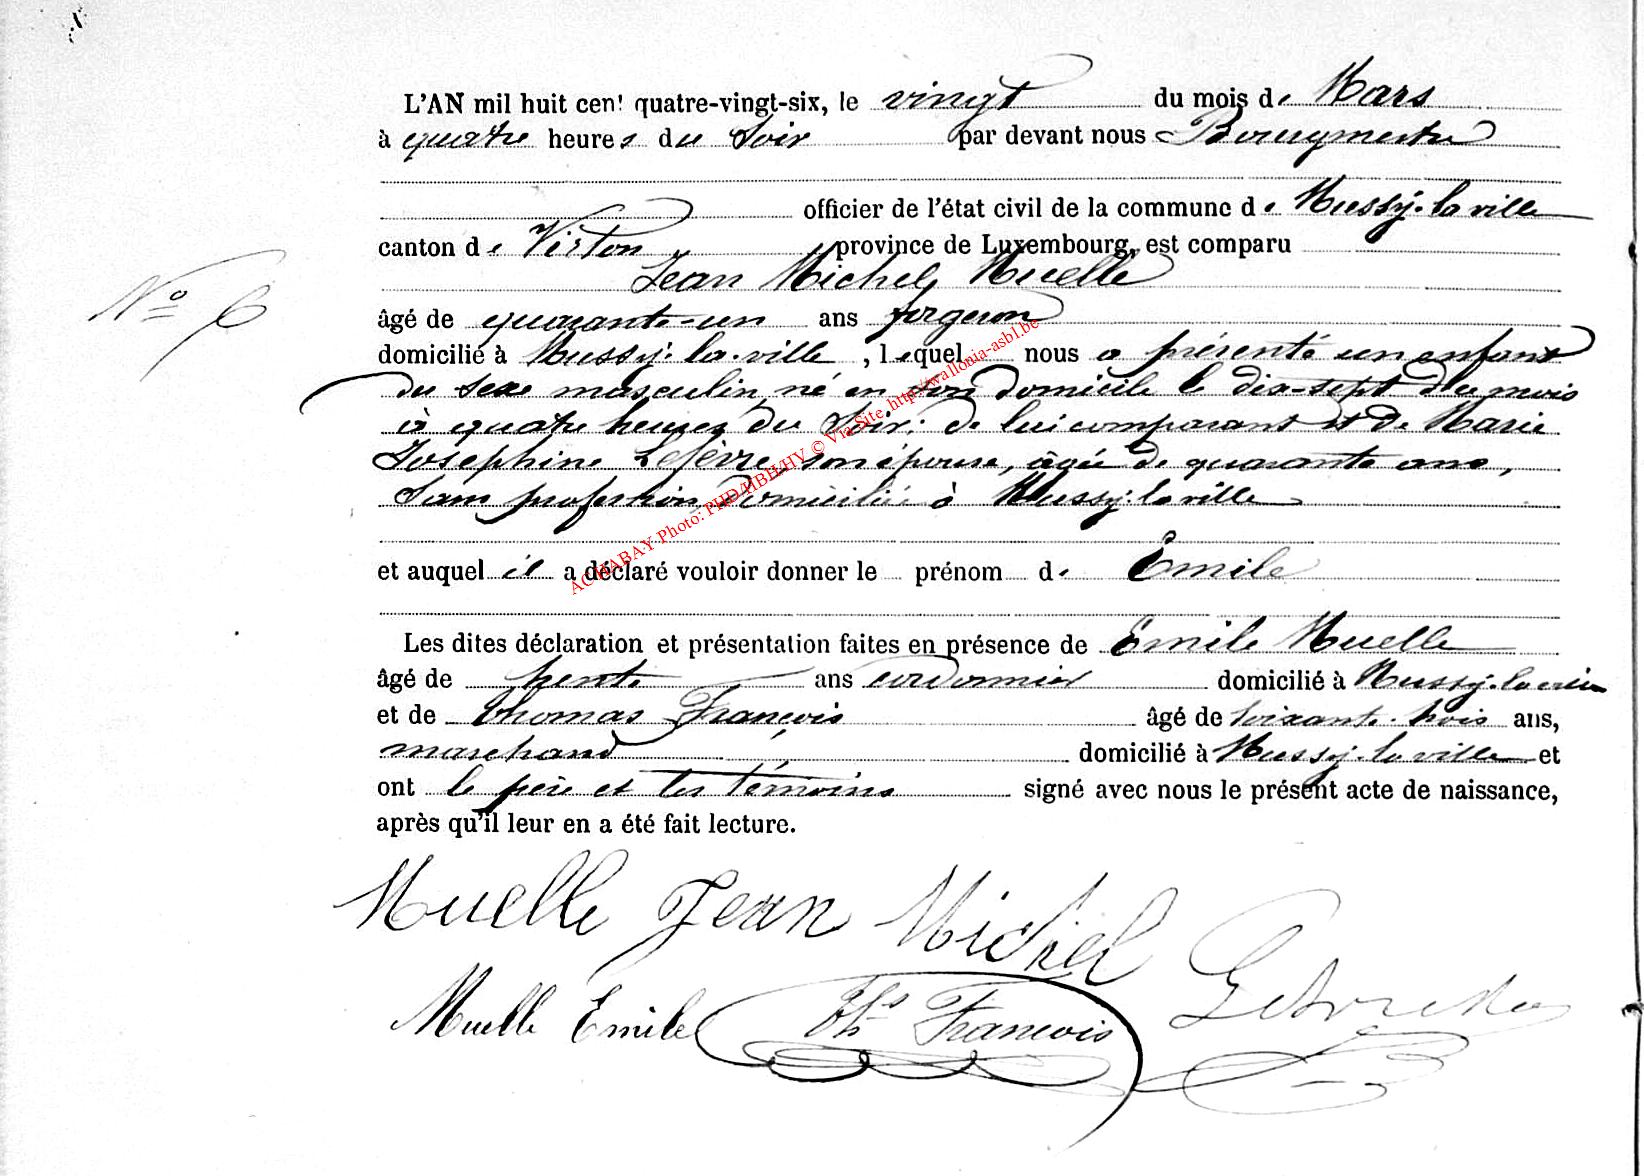 L'AN mil huit cent quatre-vingt-six, le vingt du mois de Mars
à quatre heures du Soir par devant nous Bourgmestre
officier de l'état civil de la commune de Mussy-la-ville
canton de Virton province de Luxembourg, est comparu
Jean Michel Muelle
N° 6
âgé de quarante-un ans forgeron
domicilié à Mussy-la-ville, lequel nous a présenté un enfant
du sexe masculin, né en son domicile le dix-sept du mois
à quatre heures du Soir; de lui comparant et de Marie
Joséphine Lefèvre, son épouse, âgée de quarante ans,
sans profession, domiciliée à Mussy-la-ville
et auquel il a déclaré vouloir donner le prénom de Emile
Les dites déclaration et présentation faites en présence de Emile Muelle
âgé de trente ans cordonnier domicilié à Mussy-la-ville
et de Thomas François âgé de soixante-trois ans,
marchand domicilié à Mussy-la-ville et
ont le père et les témoins signé avec nous le présent acte de naissance,
après qu'il leur en a été fait lecture.
Muelle Jean Michel
Muelle Emile Ths François
AC HABAY Photo: PHD/HBH/HV © Via Site http://wallonia-asbl.be